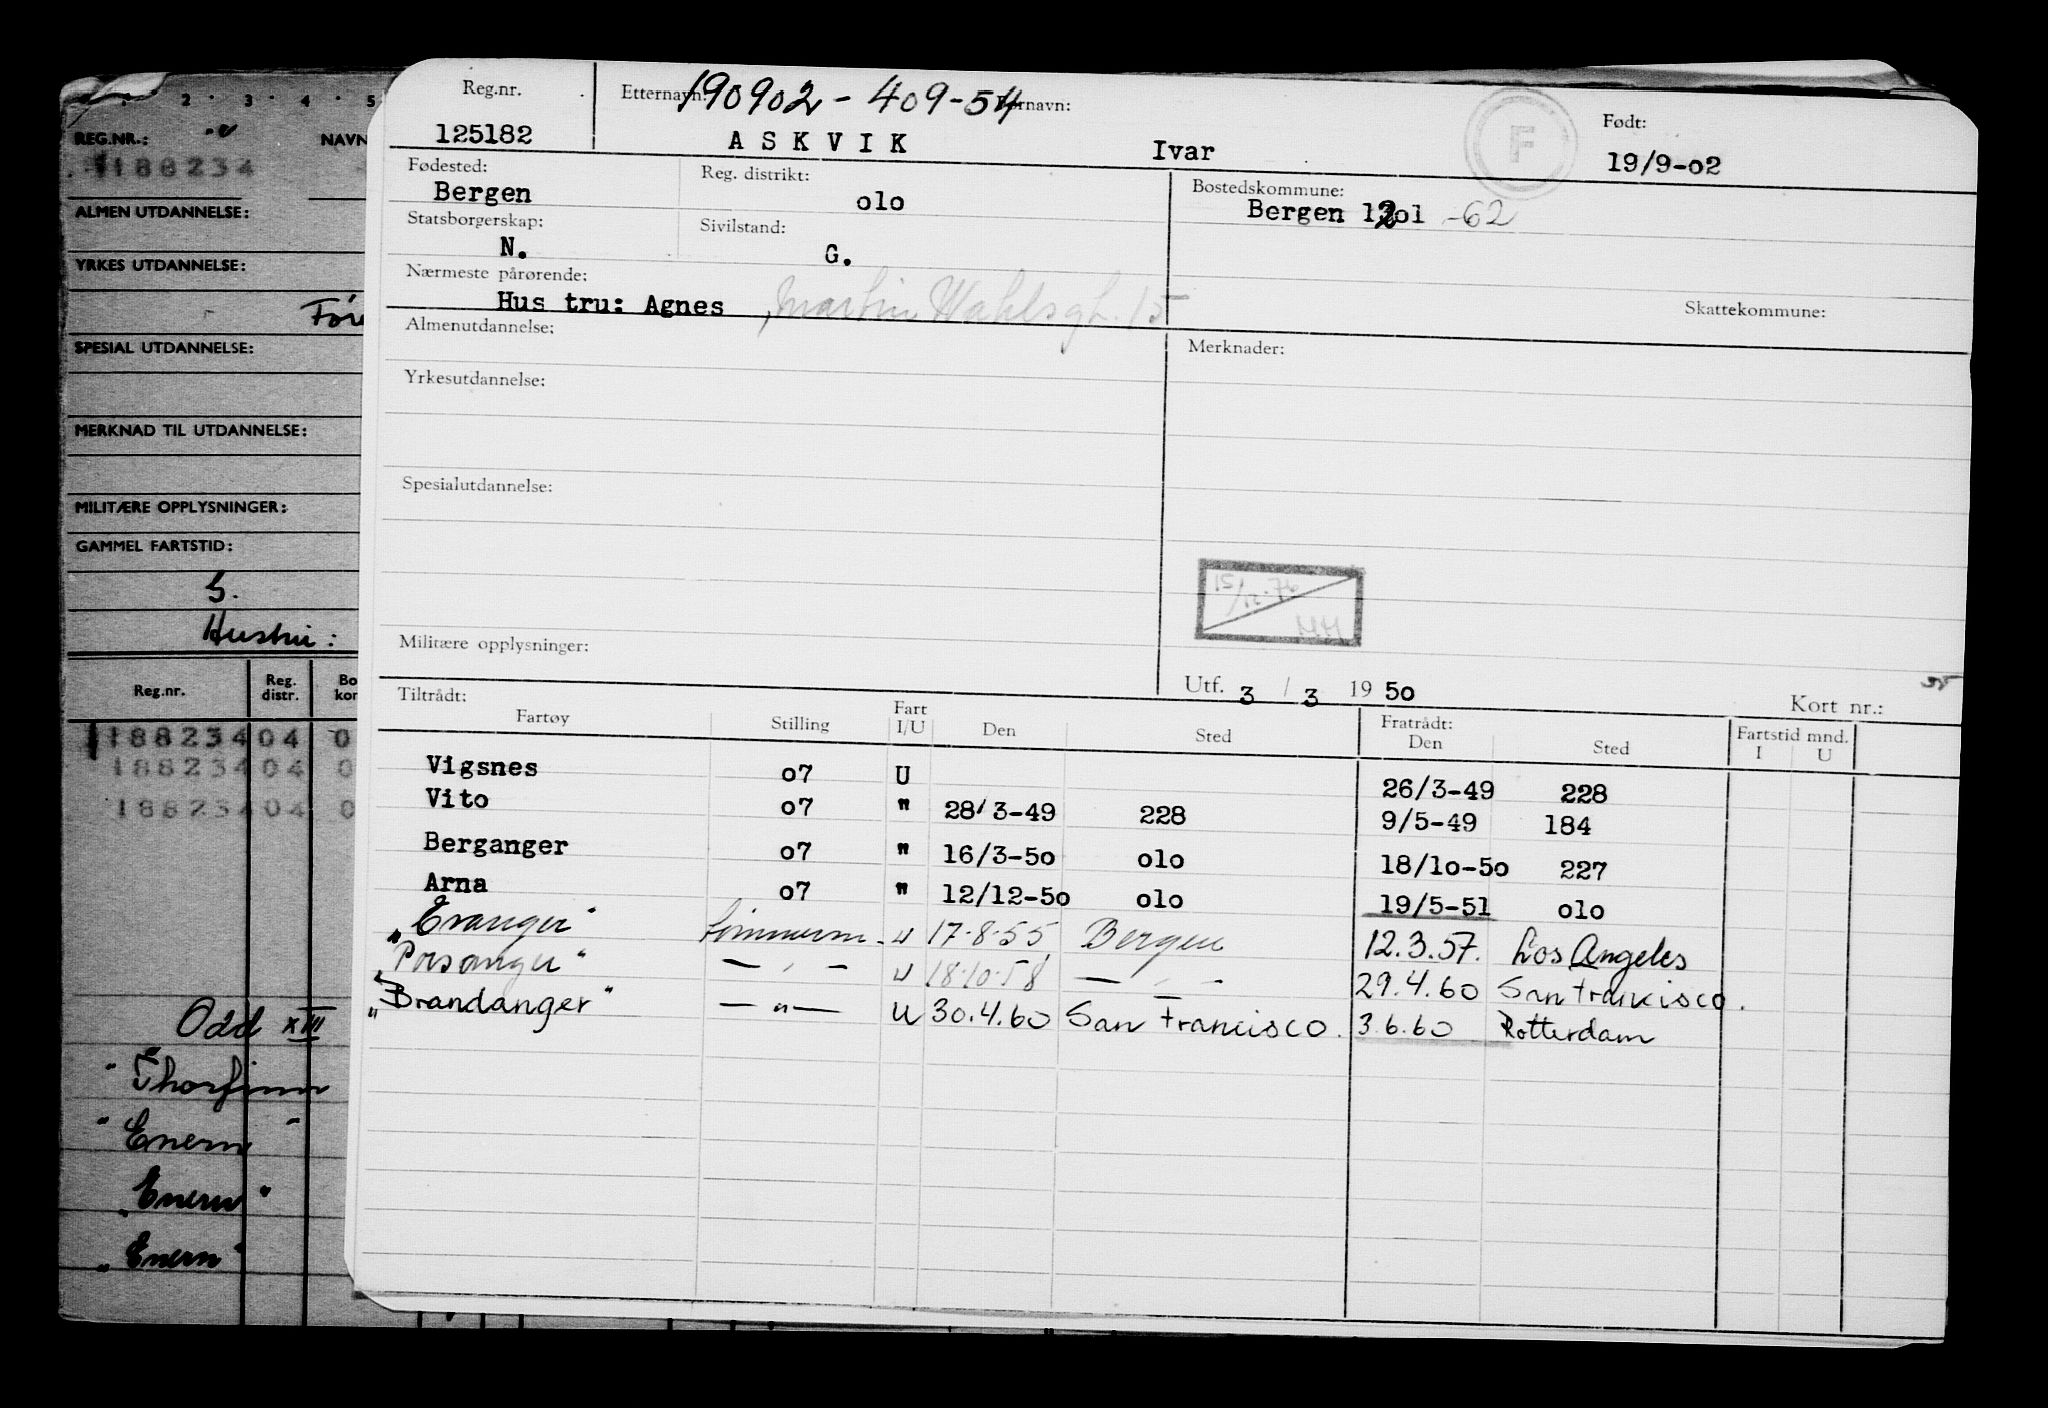 1 · 2 · 3 · 4 · 5
REG.NR.:
NAVN
188234
ALMEN UTDANNELSE:
YRKES UTDANNELSE:
SPESIAL UTDANNELSE:
MERKNAD TIL UTDANNELSE:
MILITÆRE OPPLYSNINGER:
GAMMEL FARTSTID:
G.
Hustru:
Reg.nr. Reg. distr. Bo kor
188234 04 0
188234 04 0
188234 04 0
Odd XIII
"Thorfinn
"Enern"
"Enern"
"Enern"
Reg.nr. Etternavn: 190902-409-54 Fornavn: Født:
125182 ASKVIK Ivar F 19/9-02
Fødested: Reg. distrikt: Bostedskommune:
Bergen olo Bergen 1201 -62
Statsborgerskap: Sivilstand:
N. G.
Nærmeste pårørende: Skattekommune:
Hus tru: Agnes, Martin Wahlsgt. 15
Almenutdannelse: Merknader:
Yrkesutdannelse:
Spesialutdannelse:
15/12-76
MH
Militære opplysninger:
Utf. 3 / 3 19 50 Kort nr.:
Tiltrådt: Fratrådt: Fartstid mnd.
Fartøy Stilling Fart I/U Den Sted Den Sted I U
Vigsnes o7 U 26/3-49 228
Vito o7 " 28/3-49 228 9/5-49 184
Berganger o7 " 16/3-5o olo 18/1o-5o 227
Arna o7 " 12/12-5o olo 19/5-51 olo
"Eranger" tømmerm. U 17.8.55 Bergen 12.3.57. Los Angeles
"Porsanger" — " — U 18.10.58 — " — 29.4.60 San Francisco.
"Brandanger" — " — U 30.4.60 San Francisco. 3.6.60 Rotterdam